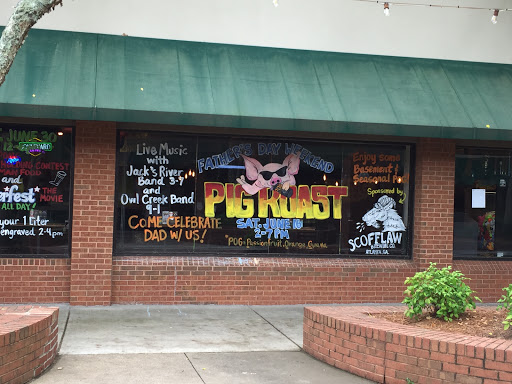 JUNE 30
12-
CONTEST
FOOD
and
erfest
THE
MOVIE
ALL DAY!
your 1 Liter
engraved 2-4pm
Live Music
with
Jack's River
Band 3-7
and
Owl Creek Band
9-1
COME CELEBRATE
DAD W/ US!
FATHERS DAY WEEKEND
PIG ROAST
SAT. JUNE 16
2-7PM
*POG=Passionfruit, Orange, Guava
Enjoy some
Basement
Seasonal
Sponsored by
SCOFFLAW
BREWING CO.
ATLANTA, GA.